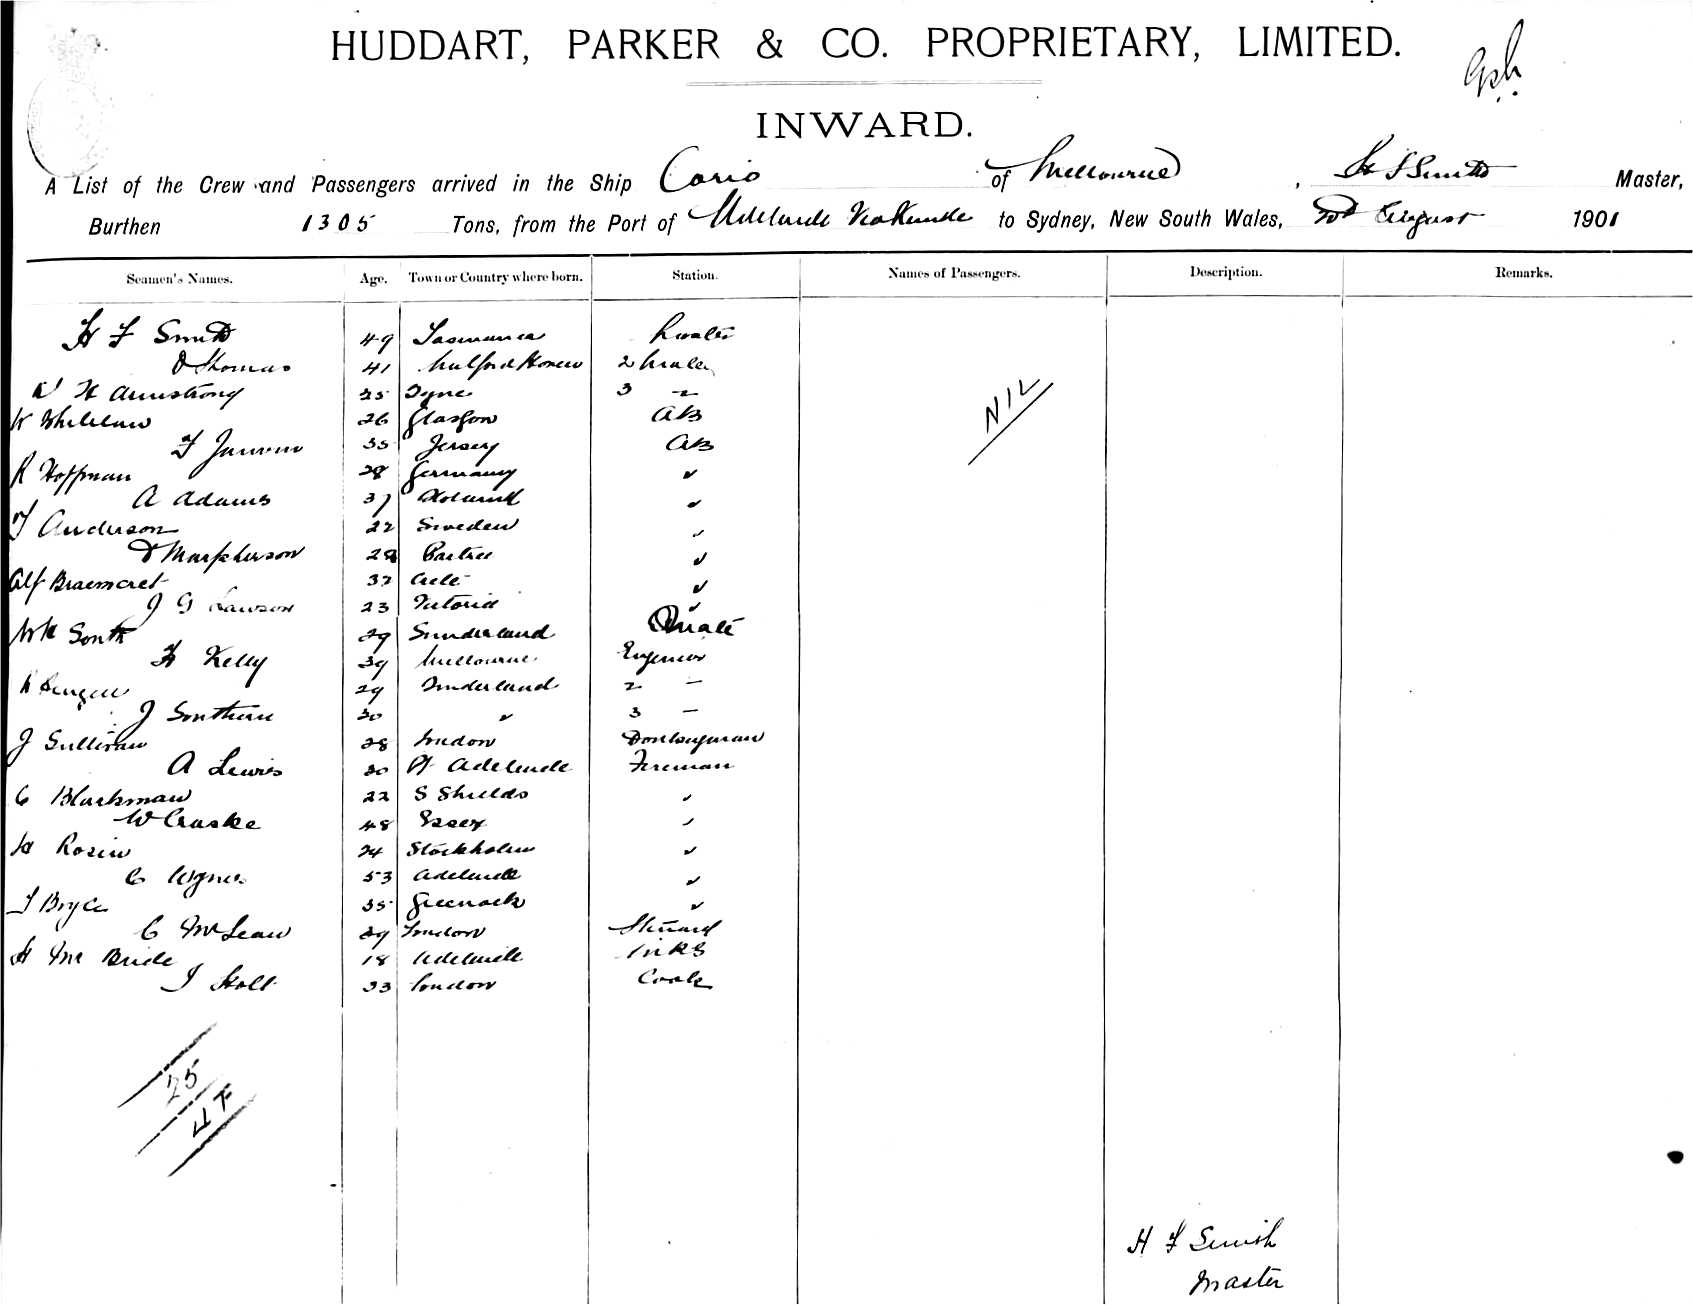 HUDDART, PARKER & CO. PROPRIETARY, LIMITED.
INWARD.
A List of the Crew and Passengers arrived in the Ship Corio of Melbourne, H F Smith Master,
Burthen 1305 Tons, from the Port of Adelaide to Sydney, New South Wales, August 1901
Seamen's Names. Age. Town or Country where born. Station. Names of Passengers. Description. Remarks.
H F Smith 49 Tasmania
D Thomas 41 2 Mate
W H Armstrong 25 Tyne 3 "
W Whitelaw 26 Glasgow AB
F Janvrin 35 Jersey AB
R Hoffman 28 Germany "
A Adams 37 "
F Anderson 22 Sweden "
D Macpherson 28 "
Alf 32 "
J G Lawson 23 Victoria "
Wm South 29 Sunderland
H Kelly 39 Melbourne Engineer
29 Sunderland 2 "
J Southern 30 " 3 "
J Sullivan 28 London Donkeyman
A Lewis 30 Pt Adelaide Fireman
C Blackman 22 S Shields "
W Craske 48 Essex "
H Rosen 24 Stockholm "
C 53 Adelaide "
J Bryce 35 Greenock "
C McLean 29 London Steward
H McBride 18 Adelaide
J Holt 33 London Cook
NIL
25
H F Smith
Master